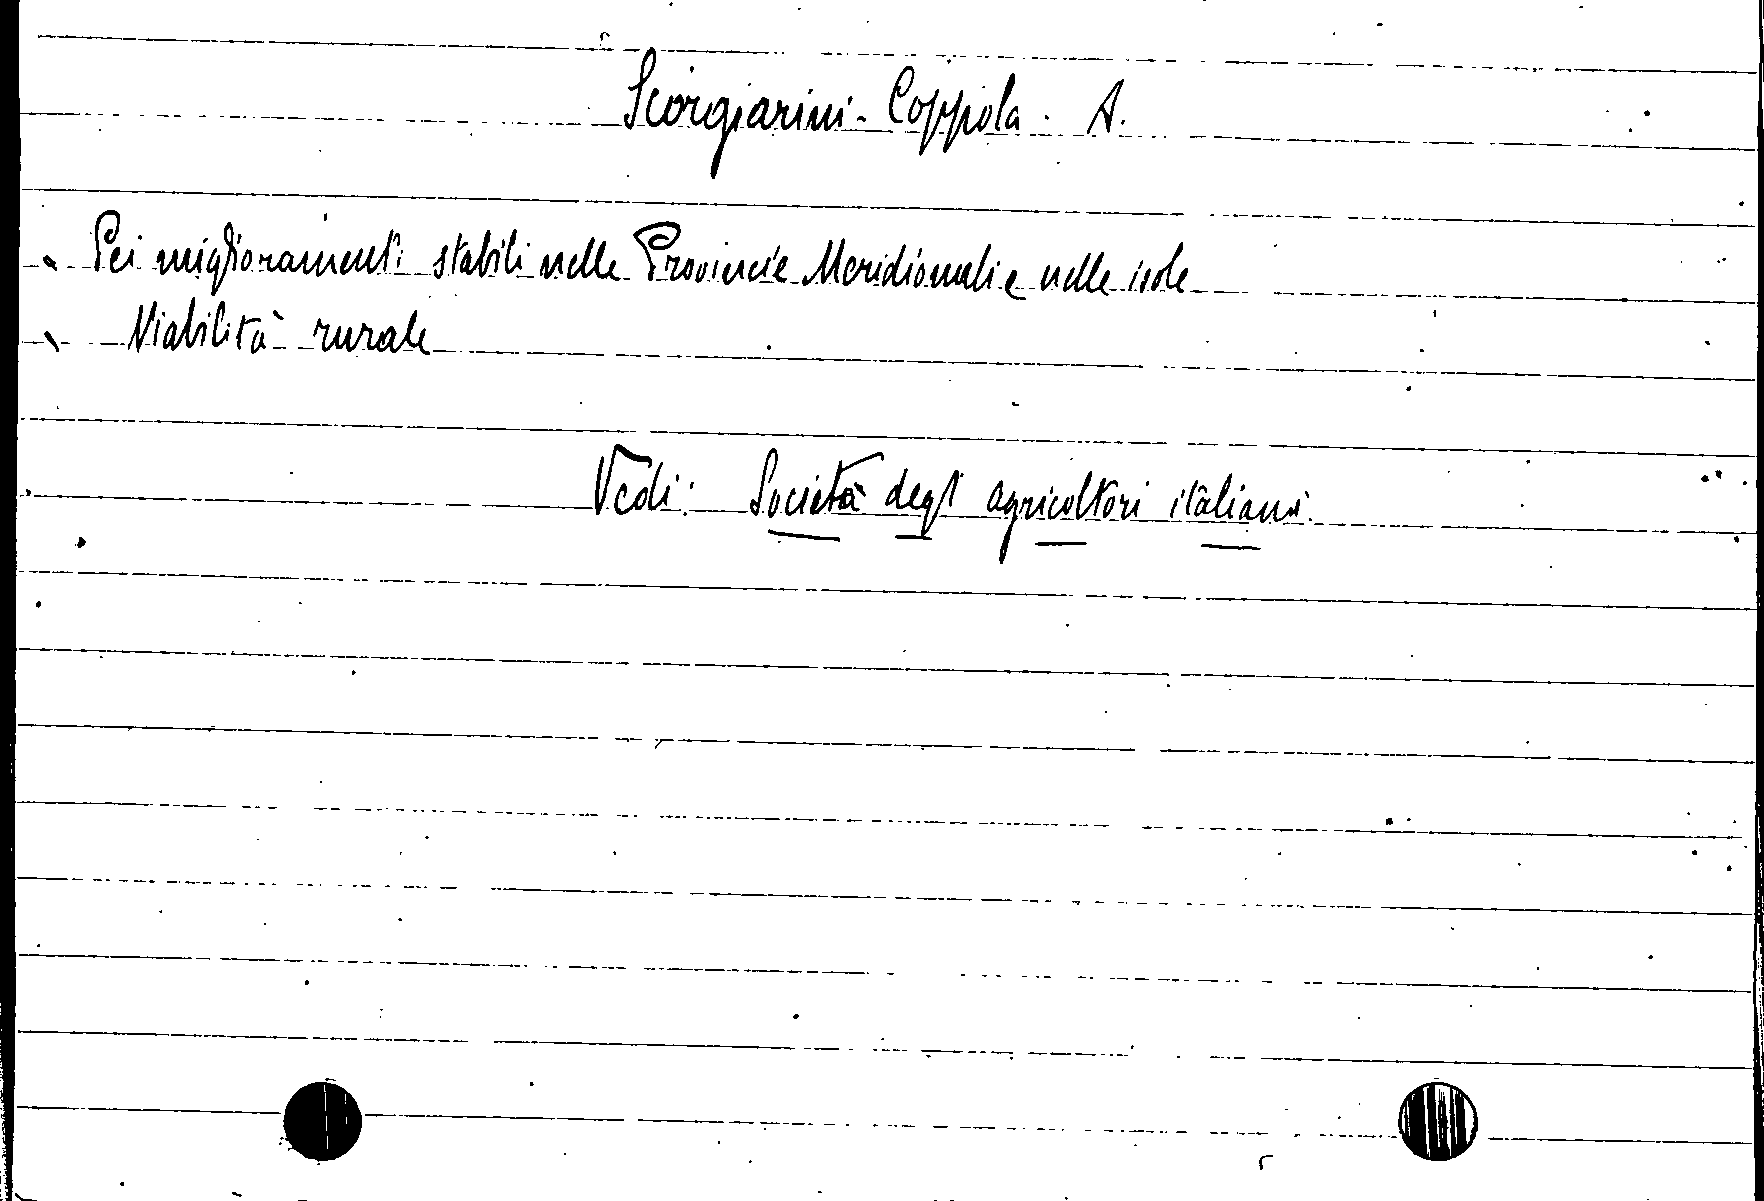 Sciorgiarini-Coppola. A.
Pei miglioramenti stabili nelle Provincie Meridionali e nelle isole
Viabilità rurale
Vedi: Società degli agricoltori italiani.